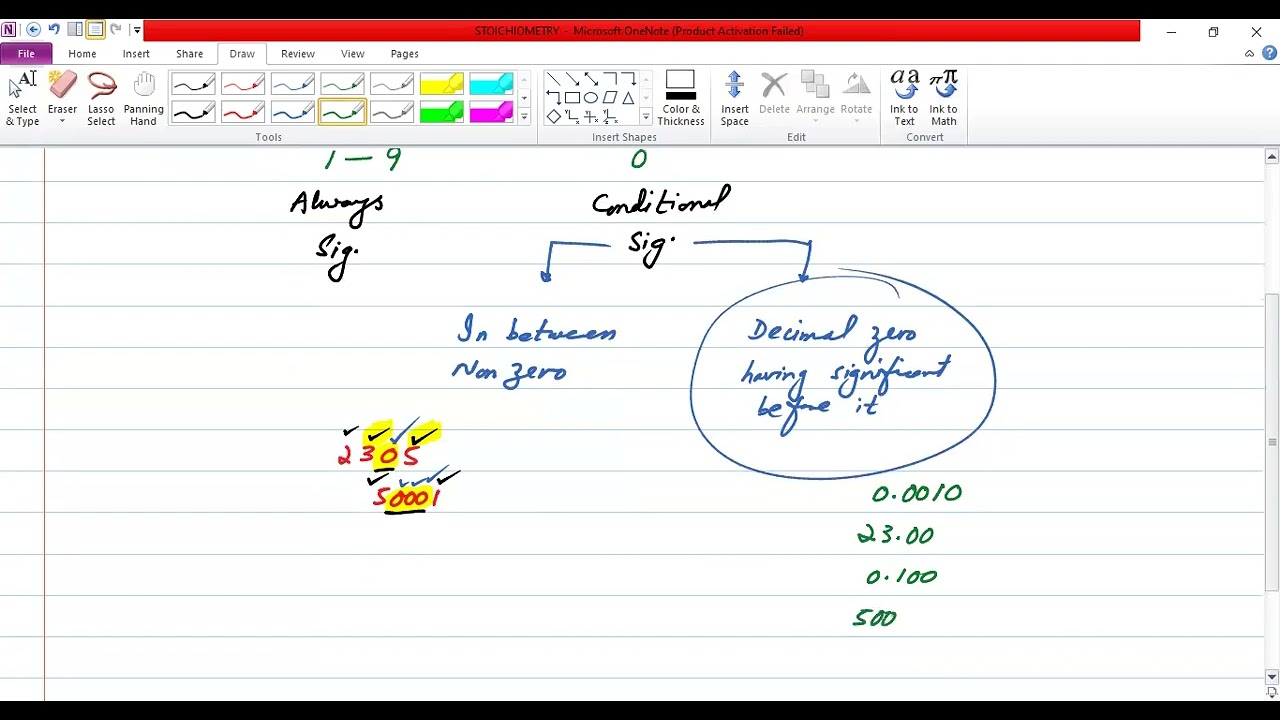 STOICHIOMETRY - Microsoft OneNote (Product Activation Failed)
File Home Insert Share Draw Review View Pages
Select & Type
Eraser
Lasso Select
Panning Hand
Color & Thickness
Insert Space
Delete
Arrange
Rotate
Ink to Text
Ink to Math
Tools
Insert Shapes
Edit
Convert
1 — 9
0
Always
Sig.
Conditional
Sig.
In between
Non zero
Decimal zero
having significant
before it
2305
50001
0.0010
23.00
0.100
500